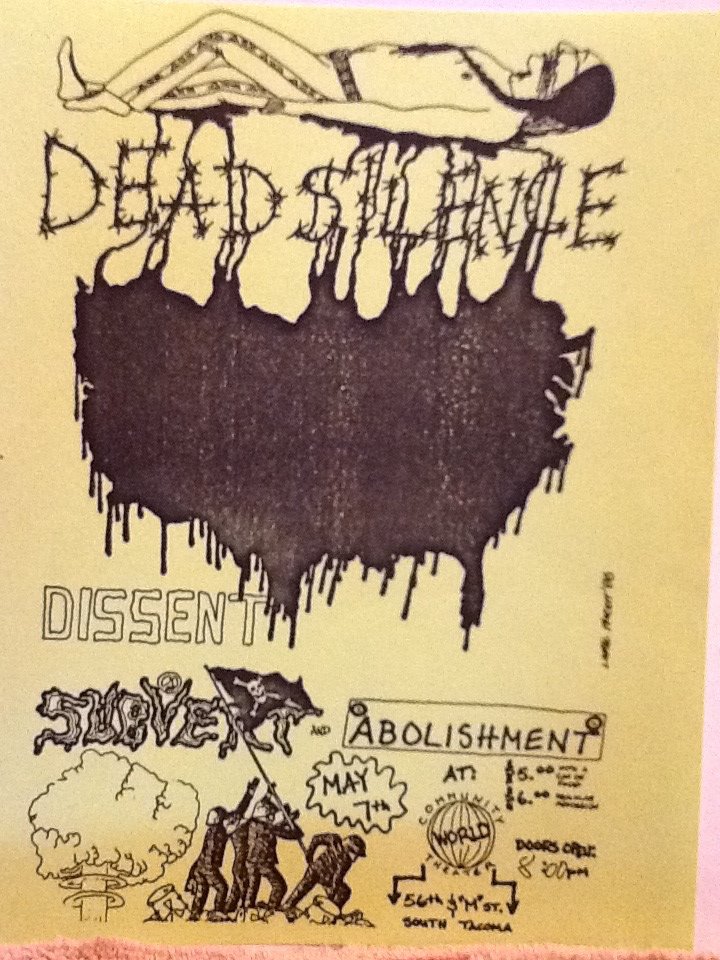 DEAD SILENCE
DISSENT
SUBVERT
AND
ABOLISHMENT
MAY
7th
AT:
COMMUNITY
WORLD
THEATER
$5.00
$6.00
DOORS OPEN
8:00pm
56th & "M" ST.
SOUTH TACOMA